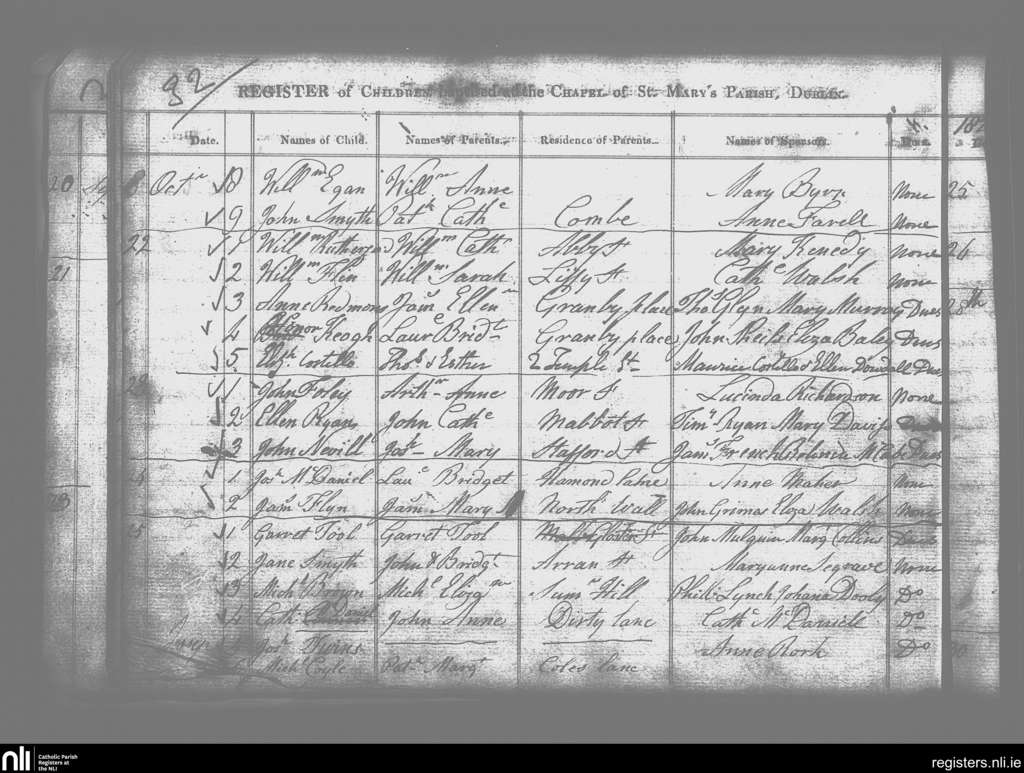 32
REGISTER of CHILDREN baptised at the CHAPEL of St. MARY's PARISH, DUBLIN.
Date. Names of Child. Names of Parents. Residence of Parents. Names of Sponsors. Dues.
Octr 8 Willm Egan Willm Anne Mary Byrn None
9 John Smyth Patk Cathe Combe Anne Farell None
22 1 Willm Willm Cath Abby St Mary Kenedy None
2 Willm Flin Willm Sarah Liffy St Cathe Walsh None
3 Anne Redmons Jams Ellen Granby place Thos Glyn Mary Murray Dues
4 Keogh Laure Bridt Granby place John Sheils Eliza Baley Dues
5 Elizh Costillo Thos & Esther 2 Temple St Maurice Costillo & Ellen Dowdall Dues
1 John Foley Arthr Anne Moor St Lucinda Richardson None
2 Ellen Ryan John Cathe Mabbot St Timy Ryan Mary Davis Dues
3 John Nevill Josh Mary Stafford St Jams French Dues
1 Jos McDaniel Lau Bridget Hamond Lane Anne Maher None
2 Jams Flyn Jams Mary North Wall John Grimes Eliza Walsh None
1 Garret Tool Garret Tool John Mulquin Margt Collins Dues
2 Jane Smyth John & Bridgt Arran St Maryanne Segrave None
3 Michl Brown Michl Sumr Hill Phill Lynch Johana Dooly Do
4 Cath Daniel John Anne Dirty lane Cathe McDaniel Do
Josh Twins Anne Rork Do
Michl Coyle Patk Margt Coles lane
nli Catholic Parish
Registers at
the NLI
registers.nli.ie